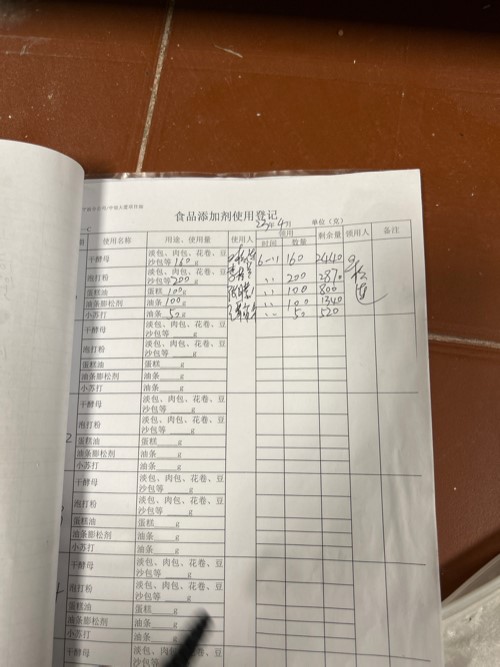 食品添加剂使用登记
单位（克）
使用名称 用途、使用量 使用人 领用 剩余量 领用人 备注
时间 数量
干酵母 淡包、肉包、花卷、豆沙包等160g 6-1 160 2440
泡打粉 淡包、肉包、花卷、豆沙包等200g 〃 200 2870
蛋糕油 蛋糕100g 〃 100 800
油条膨松剂 油条100g 〃 100 1340
小苏打 油条50g 〃 50 520
干酵母 淡包、肉包、花卷、豆沙包等____g
泡打粉 淡包、肉包、花卷、豆沙包等____g
蛋糕油 蛋糕____g
油条膨松剂 油条____g
小苏打 油条____g
2
干酵母 淡包、肉包、花卷、豆沙包等____g
泡打粉 淡包、肉包、花卷、豆沙包等____g
蛋糕油 蛋糕____g
油条膨松剂 油条____g
小苏打 油条____g
干酵母 淡包、肉包、花卷、豆沙包等____g
泡打粉 淡包、肉包、花卷、豆沙包等____g
蛋糕油 蛋糕____g
油条膨松剂 油条____g
小苏打 油条____g
干酵母 淡包、肉包、花卷、豆沙包等____g
泡打粉 淡包、肉包、花卷、豆沙包等____g
蛋糕油 蛋糕____g
油条膨松剂 油条____g
小苏打 油条____g
干酵母 淡包、肉包、花卷、豆